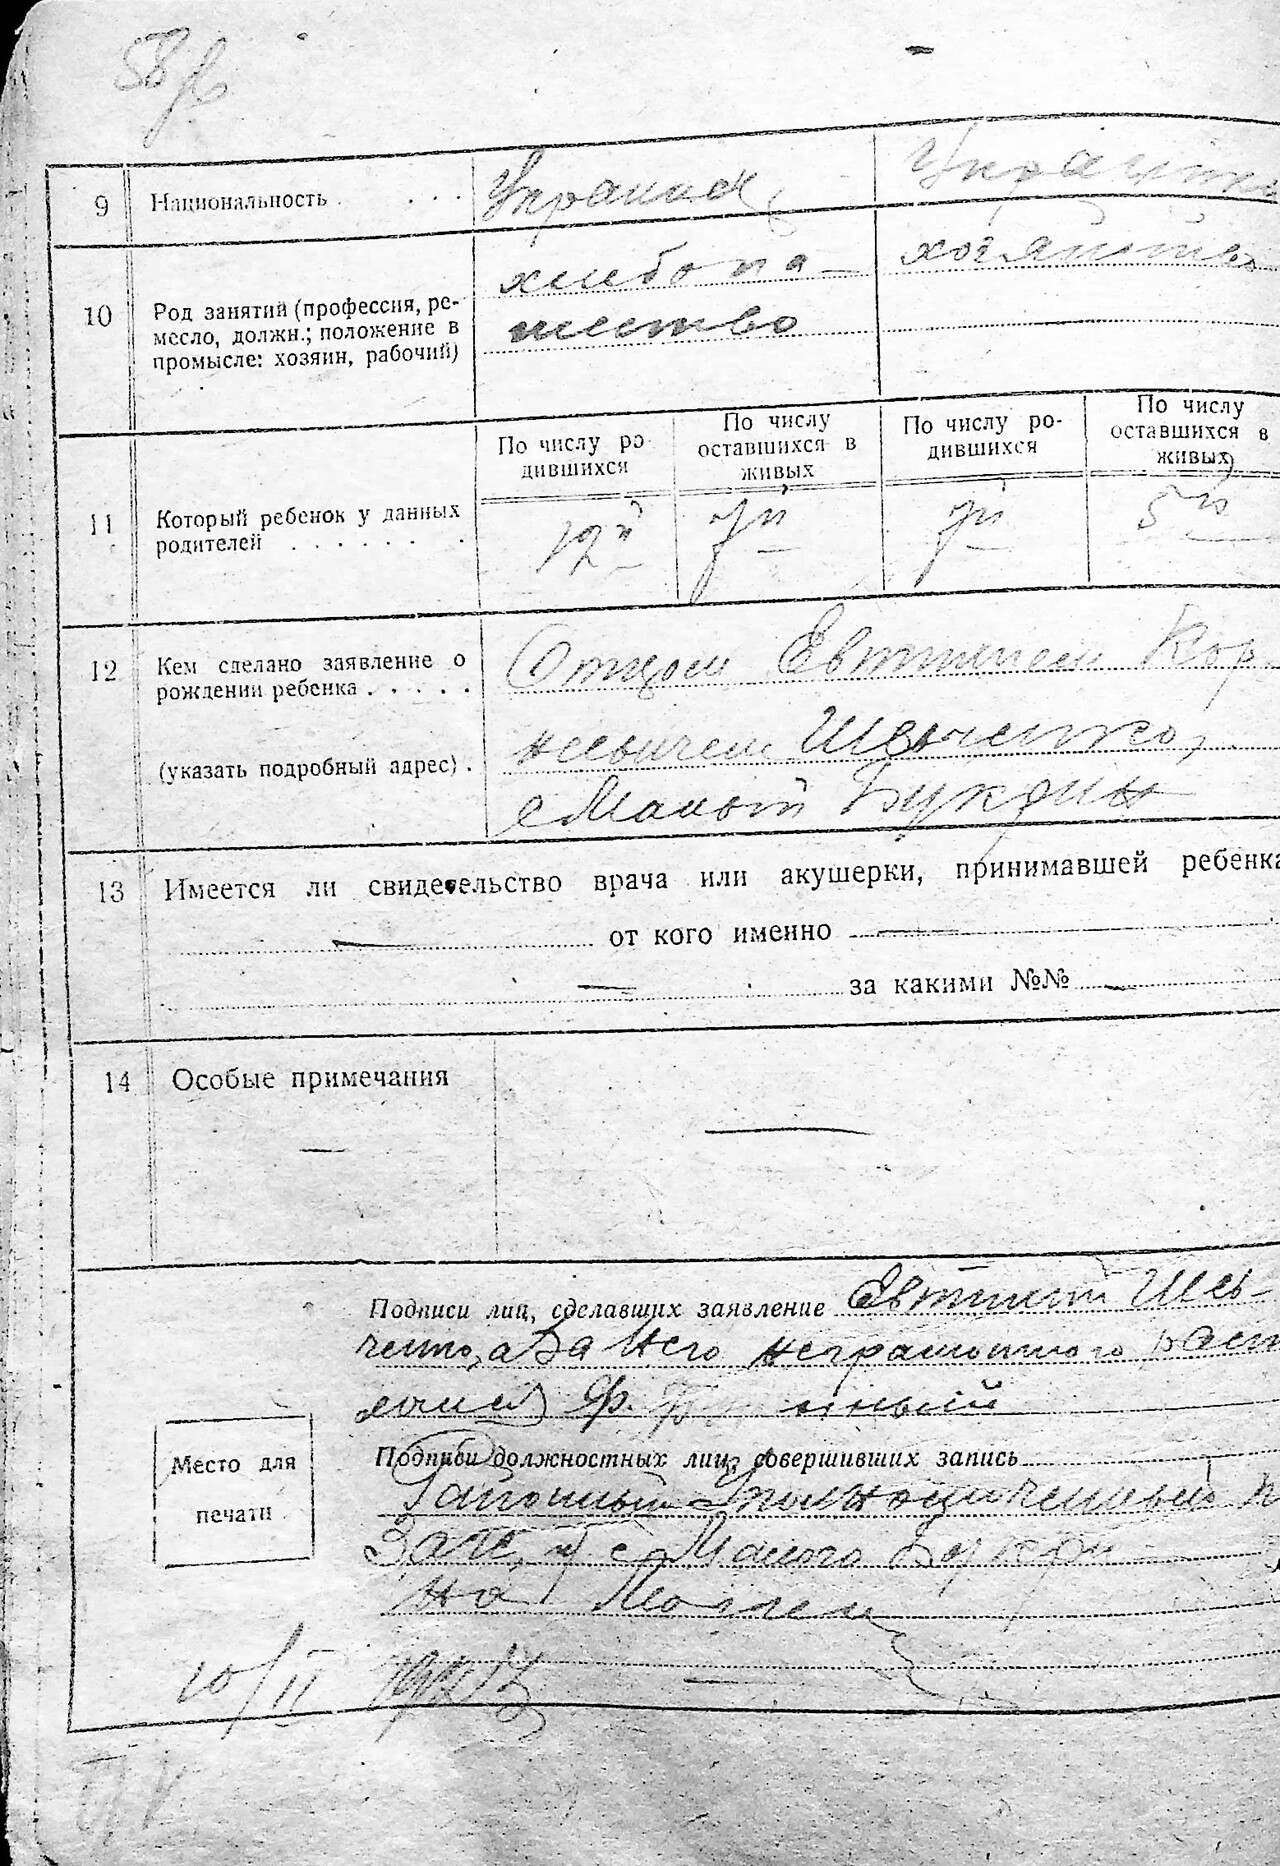 58
9 Национальность . . . . Украинец Украинка
10 Род занятий (профессия, ре-
месло, должн.; положение в
промысле: хозяин, рабочий)
хлебопа-
шество
хозяйство
По числу ро-
дившихся
По числу
оставшихся в
живых
По числу ро-
дившихся
По числу
оставшихся в
живых
11 Который ребенок у данных
родителей . . . . . . .
12й 7й 7й 5й
12 Кем сделано заявление о
рождении ребенка . . . . .
(указать подробный адрес) .
Отцом Евтихием Кор-
неевичем Шевченко,
с Малый Букрин
13 Имеется ли свидетельство врача или акушерки, принимавшей ребенка
— от кого именно —
— за какими №№ —
14 Особые примечания
— —
Подписи лиц, сделавших заявление Евтихий Шев-
ченко, а за него неграмотного расп
Ф.
Место для
печати
Подписи должностных лиц, совершивших запись
Районный Уполномоченный
Зап. с Малого Букри-
на
10/II